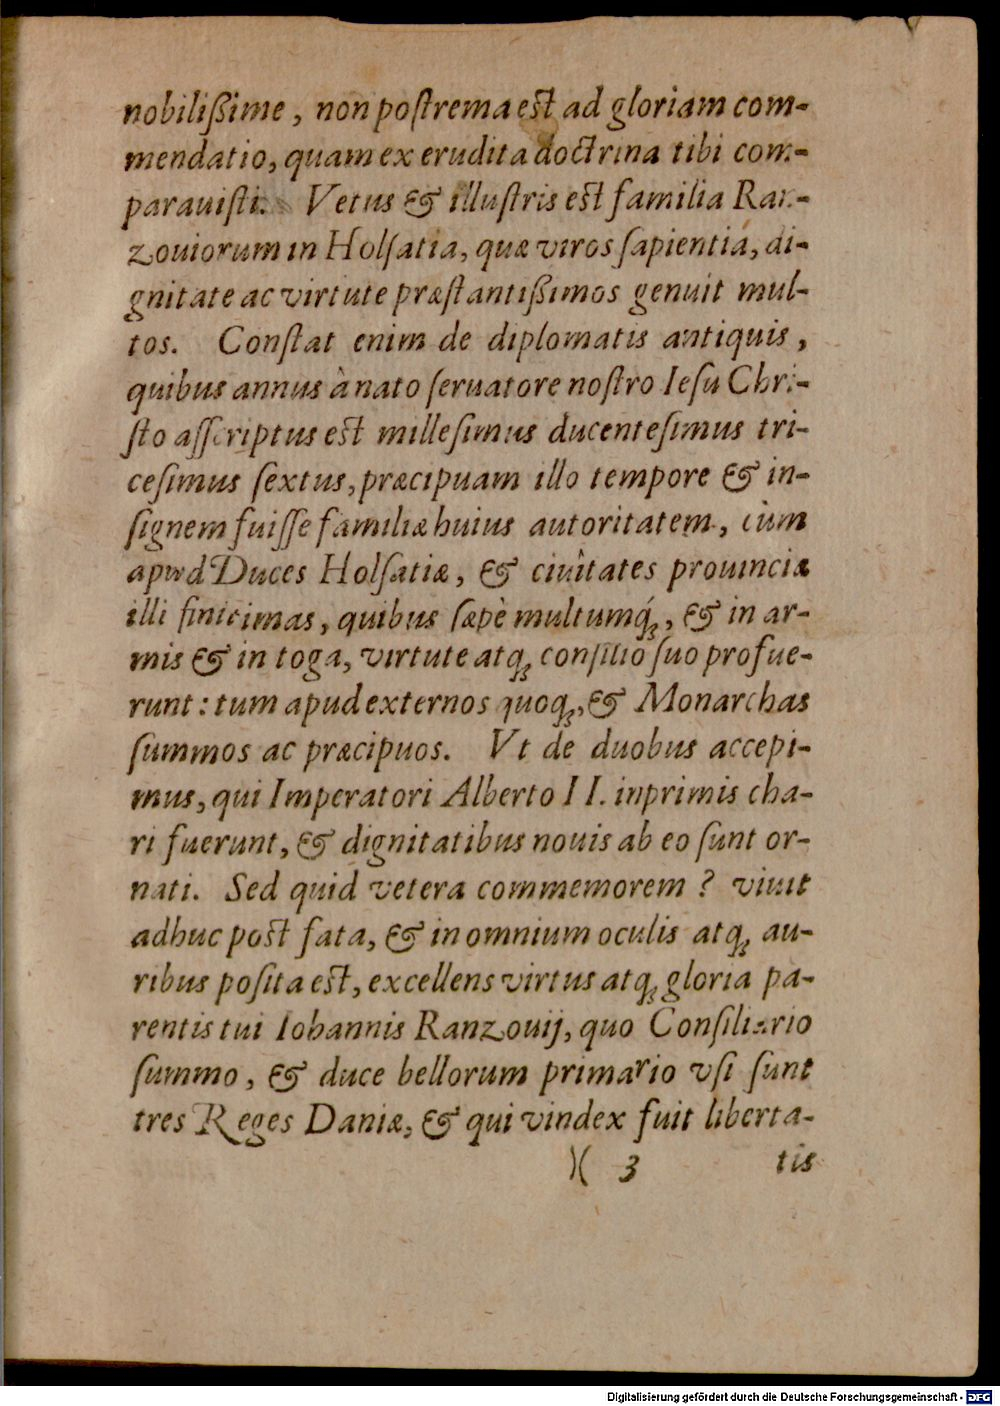 nobilißime, non postrema est ad gloriam com-
mendatio, quam ex erudita doctrina tibi com-
parauisti. Vetus & illustris est familia Ran-
zouiorum in Holsatia, quæ viros sapientia, di-
gnitate ac virtute præstantißimos genuit mul-
tos. Constat enim de diplomatis antiquis,
quibus annus à nato seruatore nostro Iesu Chri-
sto asscriptus est millesimus ducentesimus tri-
cesimus sextus, præcipuam illo tempore & in-
signem fuisse familiæ huius autoritatem, cùm
apud Duces Holsatiæ, & ciuitates prouinciæ
illi finitimas, quibus sæpè multumq́ꝫ, & in ar-
mis & in toga, virtute atqꝫ consilio suo profue-
runt: tum apud externos quoqꝫ, & Monarchas
summos ac præcipuos. Vt de duobus accepi-
mus, qui Imperatori Alberto II. inprimis cha-
ri fuerunt, & dignitatibus nouis ab eo sunt or-
nati. Sed quid vetera commemorem? viuit
adhuc post fata, & in omnium oculis atqꝫ au-
ribus posita est, excellens virtus atqꝫ gloria pa-
rentis tui Iohannis Ranzouij, quo Consiliario
summo, & duce bellorum primario vsi sunt
tres Reges Daniæ, & qui vindex fuit liberta-
)( 3 tis
Digitalisierung gefördert durch die Deutsche Forschungsgemeinschaft - DFG